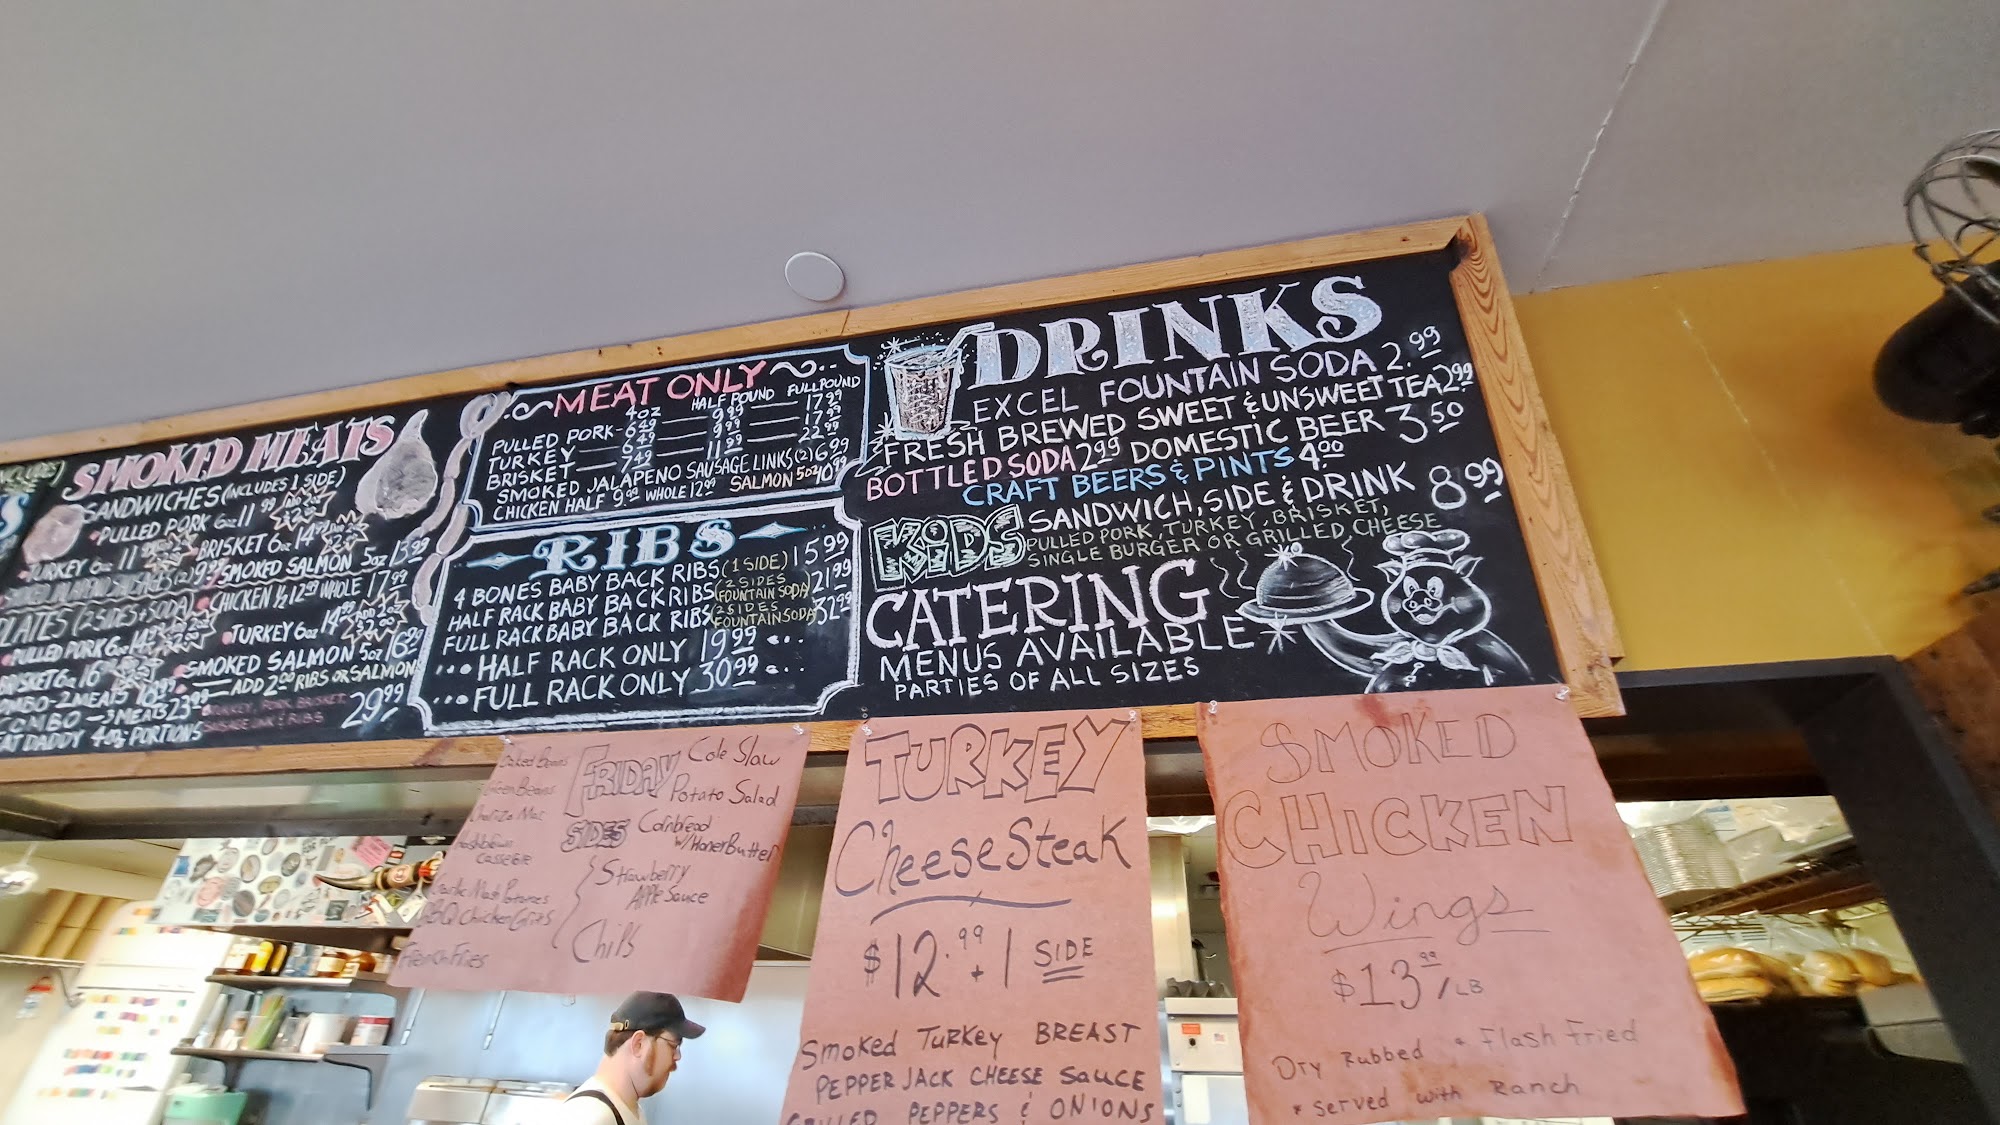 SMOKED MEATS
SANDWICHES (INCLUDES 1 SIDE)
PULLED PORK 6oz 11 99
TURKEY 6oz 11
BRISKET 6oz 14 99
SMOKED SALMON 5oz 13 99
CHICKEN ½ 12 99 WHOLE 17 99
PLATES (2 SIDES + SODA)
PULLED PORK 6oz 14
TURKEY 6oz 14 99
BRISKET 6oz 16
SMOKED SALMON 5oz 16 99
ADD 2 00 RIBS OR SALMON
COMBO - 2 MEATS 19 99
COMBO - 3 MEATS 23 99
FAT DADDY 4oz PORTIONS
TURKEY, PORK, BRISKET,
SAUSAGE LINK & RIBS
29 99
MEAT ONLY
4oz HALF POUND FULL POUND
PULLED PORK - 6 49 — 9 99 — 17 99
TURKEY — 6 49 — 9 99 — 17 99
BRISKET — 7 49 — 11 99 — 22 99
SMOKED JALAPENO SAUSAGE LINKS (2) 6 99
CHICKEN HALF 9 99 WHOLE 12 99 SALMON 5oz 10 99
RIBS
4 BONES BABY BACK RIBS (1 SIDE) 15 99
HALF RACK BABY BACK RIBS (2 SIDES FOUNTAIN SODA) 21 99
FULL RACK BABY BACK RIBS (2 SIDES FOUNTAIN SODA) 32 99
HALF RACK ONLY 19 99
FULL RACK ONLY 30 99
DRINKS
EXCEL FOUNTAIN SODA 2.99
FRESH BREWED SWEET & UNSWEET TEA 2 99
BOTTLED SODA 2 99 DOMESTIC BEER 3 50
CRAFT BEERS & PINTS 4.00
KIDS SANDWICH, SIDE & DRINK 8 99
PULLED PORK, TURKEY, BRISKET,
SINGLE BURGER OR GRILLED CHEESE
CATERING
MENUS AVAILABLE
PARTIES OF ALL SIZES
FRIDAY
SIDES
Baked Beans
Green Beans
Hashbrown
Casserole
Garlic Mash Potatoes
BBQ Chicken Grits
French Fries
Cole Slaw
Potato Salad
Cornbread
w/ Honey Butter
Strawberry
Apple Sauce
Chips
TURKEY
CheeseSteak
$12.99 + 1 SIDE
Smoked Turkey BREAST
PEPPER JACK CHEESE SAUCE
GRILLED PEPPERS & ONIONS
SMOKED
CHICKEN
Wings
$13 99 / LB
Dry Rubbed * Flash Fried
* Served with Ranch